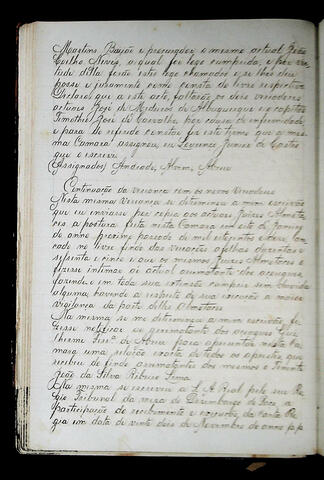 Martins Basto e procurador o mesmo actual João
Coelho Neves, a qual foi logo cumprida, e por vir-
tude della forão estes logo chamados e se lhes deu
posse e juramento como consta do livro respectivo
Declaro que a este acto, faltarão os dois vereadores
actuaes José de Medeiros de Albuquerque e o capitão
Timotheo José de Carvalho por causa de enfermidade
e para de refendo constar fis este termo que a mes-
ma Camara assignou, eu Junior de Castro
que o escrevi.
(Assignados) Andrade, Alvim, Abreu
Continuação da vereança com os novos Vereadores
Nesta mesma Vereança se determinou a mim escrivão
que eu inviasse por copia aos actuaes Juizes Almota-
ceis a postura feita nesta Camara em sete de Janeiro
do anno proximo passado de mil oitocentos e
cado no livro findo das vereações a folhas duzentas e
sessenta e cinco e que os mesmos Juizes Almotaceis a
fizesse intimar ao actual arrematante dos açougues
fazendo-a em toda sua extensão cumprir sem duvida
alguma havendo a respeito de sua execução a maior
vigilancia da parte delles Almotaceis
Na mesma se me determinou a mim escrivão fi-
sesse notificar ao arrematante dos açougues Gui-
lherme de Abreu para apresentar nesta Ca-
mara uma relação exacta de todos os aprestos que
recebeu do findo arrematante dos mesmos o
gedo da Silva Ribeiro Lima
Na mesma se escreveu a S. A. Real pelo seu Re-
gio Tribunal da meza do Desembargo do Paço, a
participação do recebimento e execução da Carta Re-
gia em data de vinte dois de Novembro do anno p.p.